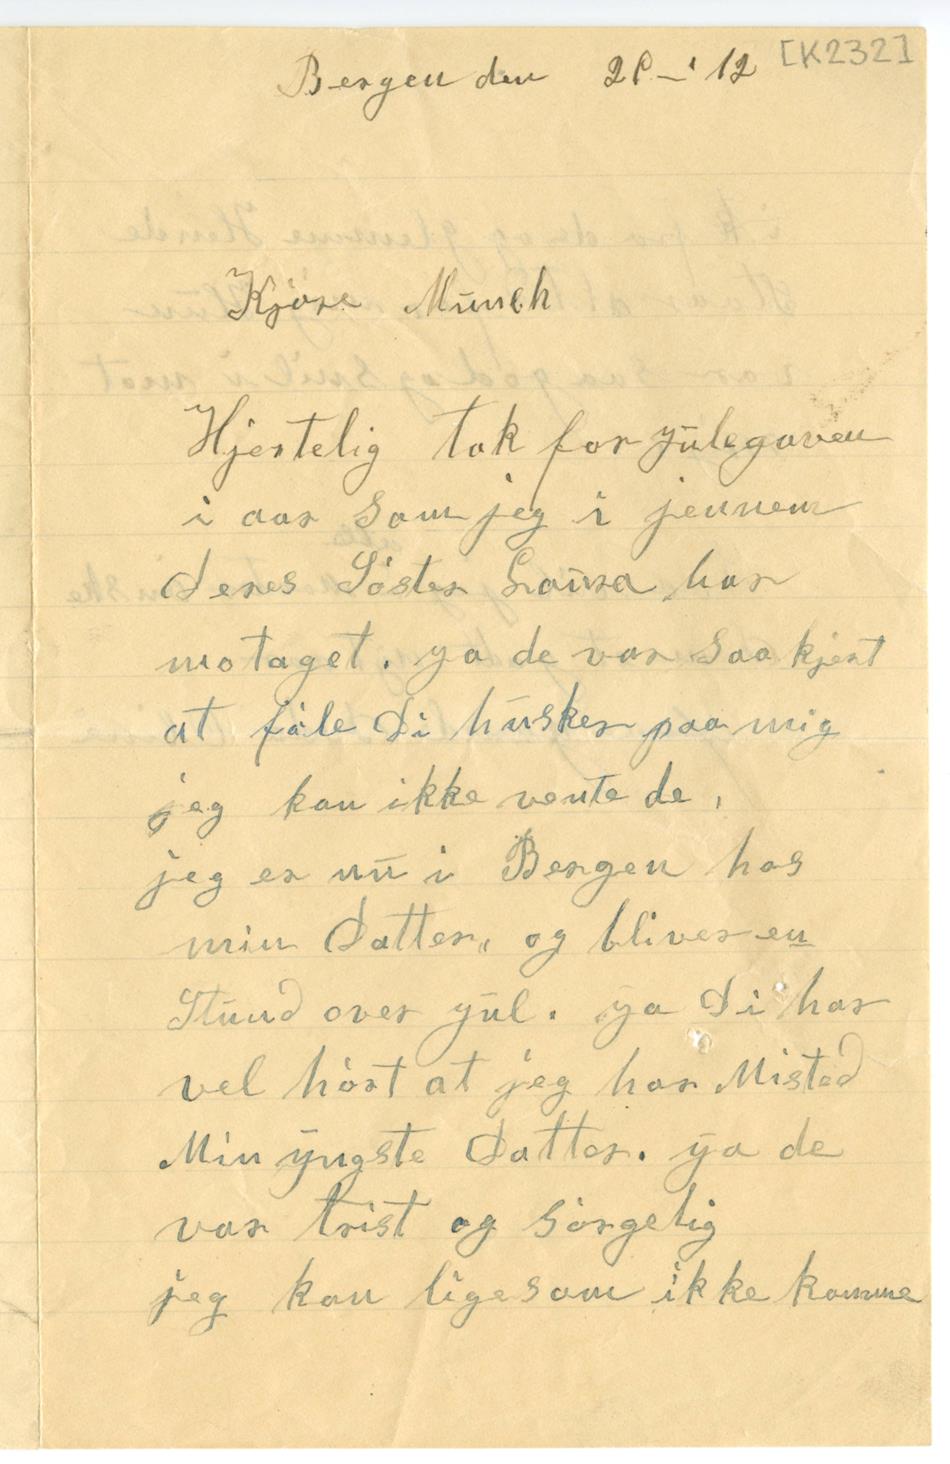 [K232]
Bergen den 2 - 12
Kjøre Münch
Hjertelig tak for yülegaven
i aar Som jeg i jennem
deres Søster Laüra har
motaget. ya de var Saa kjert
at føle Di hüsker paa mig
jeg kan ikke vente de,
jeg er nü i Bergen hos
min Datter, og bliver en
Stünd over yül. ya Di har
vel hørt at jeg har Misted
Min yngste Datter. ya de
var trist og sørgelig
jeg kan ligesom ikke komme